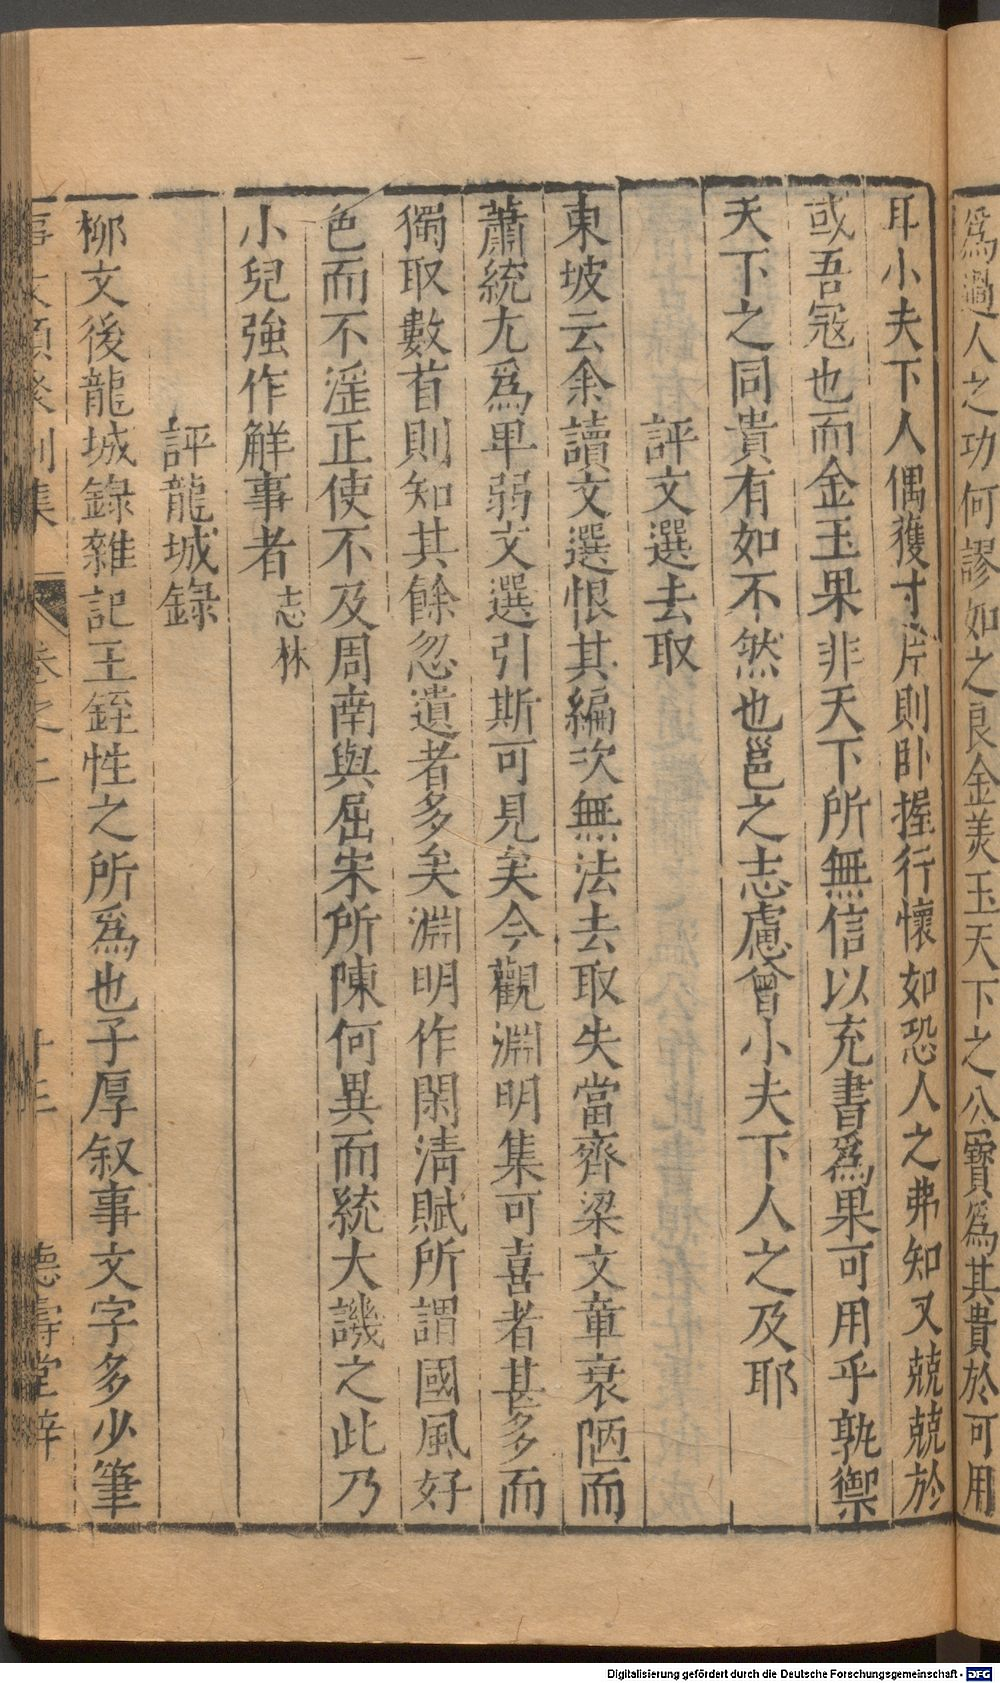 為過人之功何謬如之良金美玉天下之公寶為其貴於可用
耳小夫下人偶獲寸片則卧握行懷如恐人之弗知又兢兢於
或吾冦也而金玉果非天下所無信以充書爲果可用乎孰禦
天下之同貴有如不然也邕之志慮曾小夫下人之及耶
評文選去取
東坡云余讀文選恨其編次無法去取失當齊梁文章衰陋而
蕭統尤爲卑弱文選引斯可見矣今觀淵明集可喜者甚多而
獨取數首則知其餘忽遺者多矣淵明作閑淸賦所謂國風好
色而不滛正使不及周南與屈宋所陳何異而統大譏之此乃
小兒強作觧事者 志林
評龍城錄
柳文後龍城錄雜記王銍性之所爲也子厚叙事文字多少筆
事文類聚別集 卷之二 十三 德壽堂梓
Digitalisierung gefördert durch die Deutsche Forschungsgemeinschaft - DFG